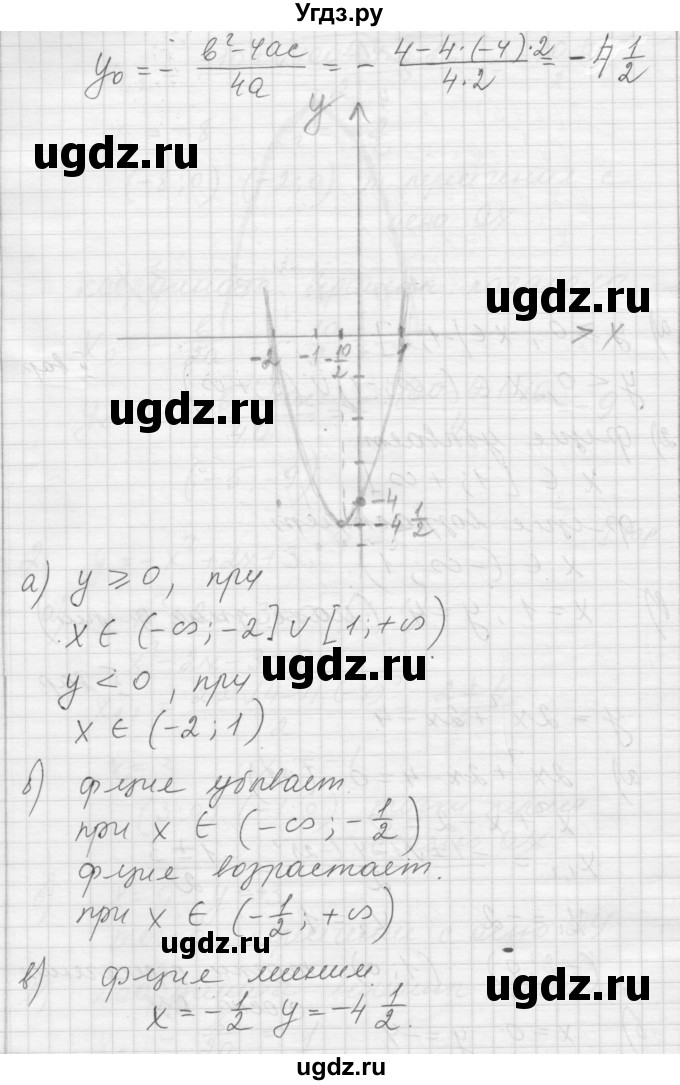 Угдз.ру
y₀ = - (b² - 4ac)/(4a) = - (4 - 4·(-4)·2)/(4·2) = -4 1/2
y
ugdz.ru
ugdz.ru
x
-2 -1 -10/2 1
ugdz.ru
-4
-4 1/2
а) y ≥ 0, при
x ∈ (-∞; -2] ∪ [1; +∞)
ugdz.ru
y < 0, при
x ∈ (-2; 1)
б) фция убывает.
при x ∈ (-∞; -1/2)
ugdz.ru
фция возрастает.
при x ∈ (-1/2; +∞)
ugdz.ru
в) фция миним.
ugdz.ru
x = -1/2 y = -4 1/2.
ugdz.ru